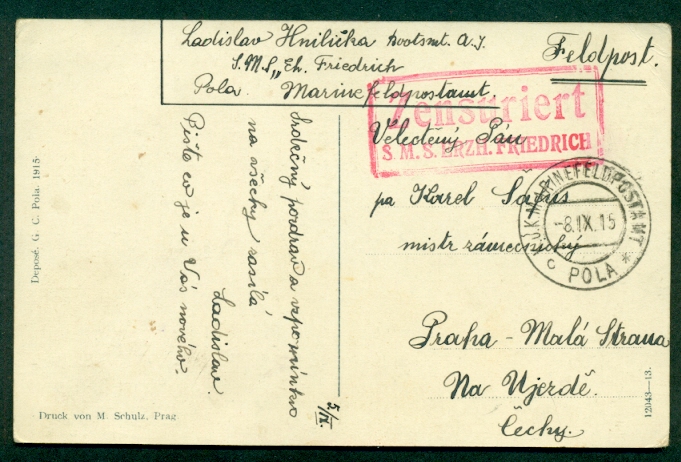 Ladislav Hnilička bootsmt. A.J.
S.M.S. „Eh. Friedrich
Pola. Marinefeldpostamt.
Feldpost.
Zensuriert
S. M. S. ERZH. FRIEDRICH
Velectěný Pán
pa Karel
mistr zámečnický
Praha - Malá Strana
Na Ujezdě.
Čechy.
K.U.K. MARINEFELDPOSTAMT
-8.IX.15
c POLA *
Srdečný pozdrav a vzpomínku
na všecky zasílá
Ladislav.
Pište co je u Vás nového.
5/IX.
Deposé. G. C. Pola. 1915·
Druck von M. Schulz, Prag
12043—13.